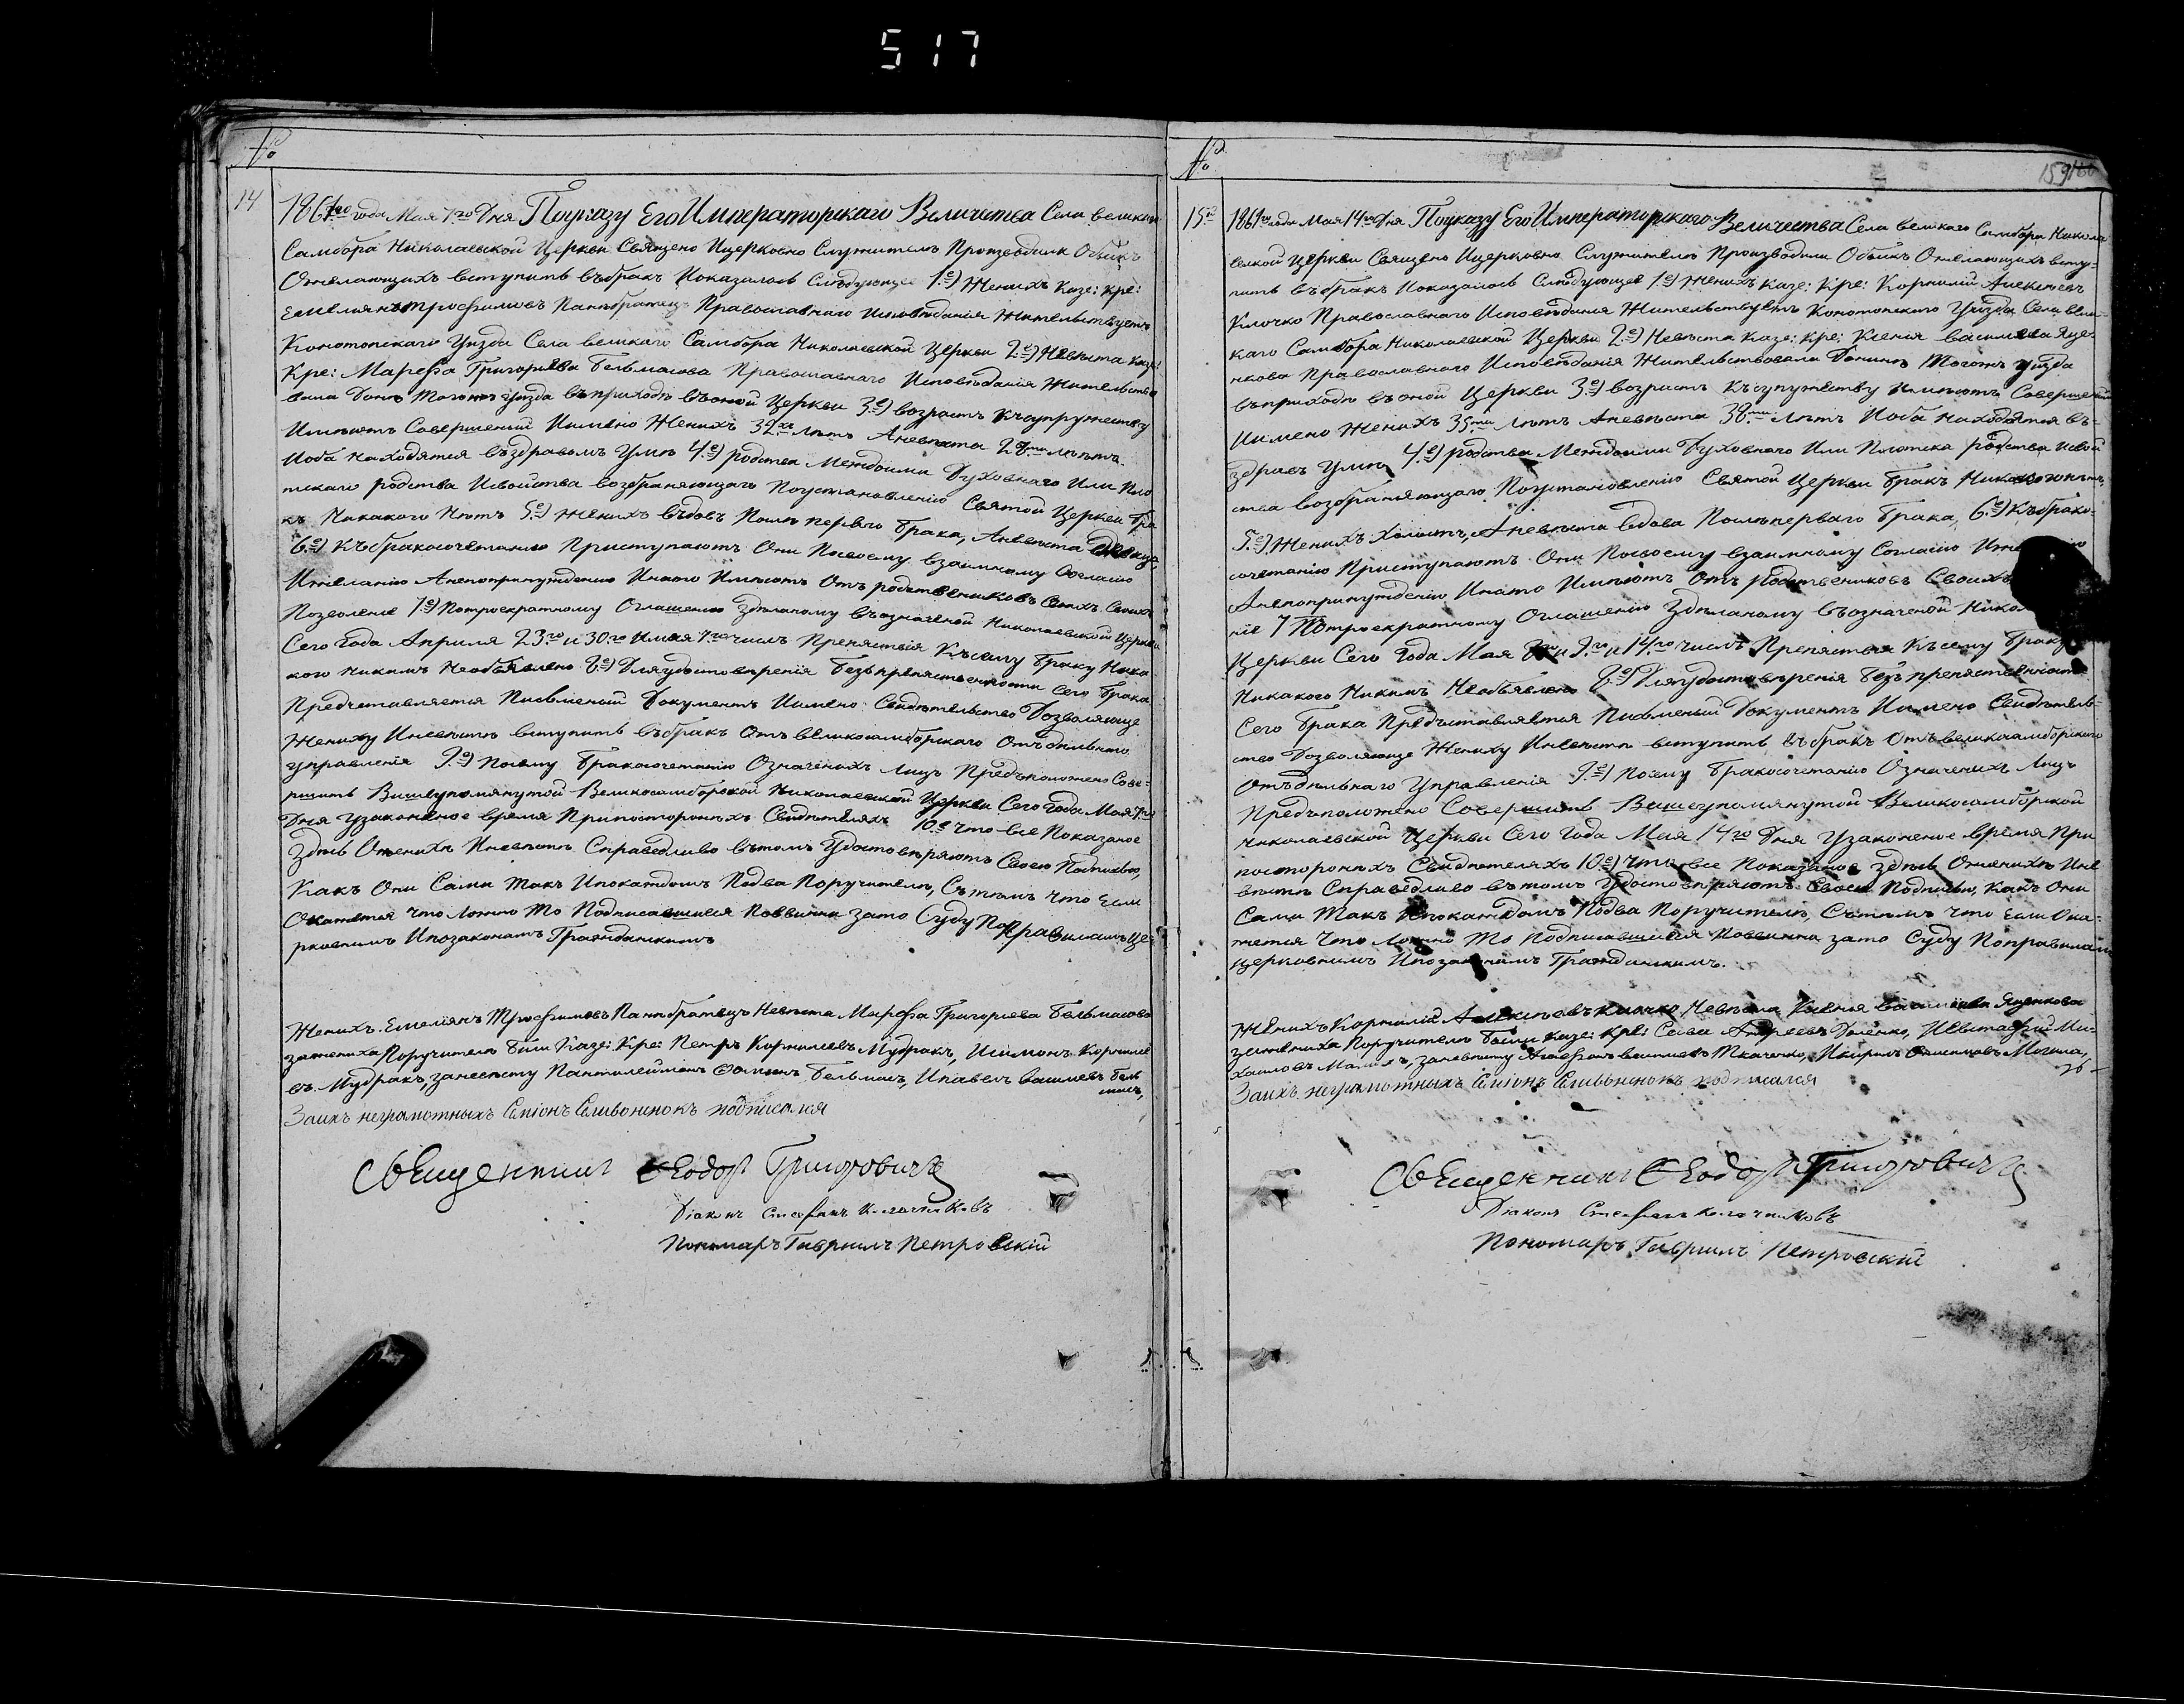 517
№
14
1861го года Мая 7го Дня Поуказу Его Императорскаго Величества Села великаго
Самбора Николаевской Церкви Священо Ицерковно Служителъ Производили Обыкъ
Ожелающихъ вступить въбракъ Иоказалось Слъдующее 1е) Женихъ Казе: кре:
Емелиянъ трофимовъ Панибратецъ Православнаго Исповъданія Жительствуетъ
Конотопскаго Уъзда Села великаго Самбора Николаевской Церкви 2е) Невъста казе:
Кре: Марефа Григориева Бельмасова Православнаго Исповъданія Жительство
вала Донъ Тогожъ уъзда въприходъ въоной Церкви 3е) возрастъ Ксупружеству
Имъютъ Совершений Иимено Женихъ 32хъ лътъ Аневъста лътъ
Иоба находятся въздравомъ Умъ 4е) родства Междоими Духовнаго Или Пло
тскаго родства Исвойства возбраняющаго Поустановленію Святой Церкви бра
къ Никакого Нътъ 5е) Женихъ въдовъ Послъ перваго брака, Аневъста девица,
6е) Къбракосочетанію Приступаютъ Они Посвоему взаимному Согласію
Ижеланію Анепопринуждению Инато Имъютъ Отъ родствениковъ Своихъ
Позволение 7е) Потроекратному Оглашению Здъланому въозначеной Николаевской Церкви
Сего года Априля 23го и 30го Имая 7го числъ Препяствія Къ сему браку Ника
кого никимъ Необъявлено 8е) Дляудостовъренія безъпрепяственности Сего брака
Предъставляется Писменый Документъ Иимено Свидътельство Дозволяюще
Жениху Иневъстъ вступить въбракъ Отъ великосамборскаго Отъдъльнаго
управленія 9е) Посему бракосочетанію Означеныхъ лицъ Предположено Сове-
ршить Вышеупомянутой Великосамборской Николаевской Церкви Сего года Мая 7го
Дня Узаконеное время Припостороныхъ Свидътеляхъ 10е Что все Показаное
Здъсь Оженихъ Иневъстъ Справедливо вътомъ Удостовъряютъ Своею Подписью,
Какъ Они Сами Такъ Ипокаждомъ Подва Поручителъ, Сътъмъ что Если
Окажется Что ложно То Подписавшиеся Повинни Зато Суду Поправиламъ Це
рковнимъ Ипозаконамъ Гражданскимъ
Женихъ Емелиянъ Трофимовъ Панибратецъ Невъста Марефа Григориева Бельмасова
зажениха Поручители били Казе: Кре: Петръ Корнилиевъ Мудракъ, Исимонъ Корнилие
въ Мудракъ, заневъсту Пантилеймонъ Бельмасъ, Ипавелъ василиевъ бель
масъ,
Заихъ неграмотныхъ Семіонъ Сливонснокъ подписался
Священникъ Феодоръ Григоровичъ
Діаконъ Стефанъ
Пономаръ Гавриилъ Петровскій
№
159
15й
1861го года Мая 14го Дня Поуказу Его Императорскаго Величества Села великаго Самбора Никола
евской Церкви Священо Ицерковно Служителъ Производили Обыкъ Ожелающихъ всту-
пить въбракъ Иоказалось Слъдующее 1е) Женихъ казе: кре: Корнилий Алексиевъ
Клочко Православнаго Исповъданія Жительствуетъ Конотопскаго Уъзда Села вели-
каго Самбора Николаевской Церкви 2е) Невъста казе: кре: Ксенія василиева Яце-
нкова Православнаго Исповъданія Жительствовала Донинъ Тогожъ уъзда
въприходъ въоной Церкви 3е) возрастъ Къ супружеству имъютъ Совершений
Иимено Женихъ 35ти лътъ Аневъста лътъ Иоба находятся въ-
здравъ Умъ 4е) родства Междоими Духовнаго Или Плотска родства Исвой
ства возбраняющаго Поустановленію Святой Церкви бракъ Никакого нътъ,
5е) Женихъ Холостъ, Аневъста вдова Послъперваго брака, 6е) Къбрако-
сочетанію Приступаютъ Они Посвоему взаимному Согласію
Анепопринуждению Инато Имъютъ Отъ Родствениковъ Своихъ
ние 7 Потроекратному Оглашению Здъланому Въозначеной Нико
Церкви Сего года Мая 9го и 14го числъ Препяствія Къ сему браку
Никакого Никимъ Необъявлено 8е) Дляудостовъренія безъпрепяственности
Сего брака Предъставляется Писменый Документъ Иимено Свидътель-
ство Дозволяюще Жениху Иневъстъ вступить въбракъ Отъ великосамборскаго
Отъдъльнаго Управленія 9е) Посему бракосочетанію Означеныхъ Лицъ
Предположено Совершить Вишеупомянутой Великосамборской
Николаевской Церкви Сего Года Мая 14го Дня Узаконеное время При
постороныхъ Свидътеляхъ 10е) Что все Показаное здъсь Оженихъ Ине
въстъ Справедливо вътомъ Удостовъряютъ Своею Подписью, Какъ Они
Сами Такъ Ипокаждомъ Подва Поручителъ, Сътъмъ что Если Ока-
жется Что ложно То Подписавшиеся Повинни зато Суду Поправиламъ
Церковнимъ Ипозаконамъ Гражданскимъ.
Женихъ Корнилій Алексиевъ Клочко Невъста Ксения василиева Яценкова
зажениха Поручители Были казе: кре: Сава Андреевъ Доленко, Иевстафий Ми-
хаиловъ заневъсту Агафонъ василиевъ Ткаченко, Могила,
Заихъ неграмотныхъ Семіонъ Сливонснокъ подписался
Священникъ Феодоръ Григоровичъ
Діаконъ Стефанъ
Пономаръ Гавриилъ Петровский